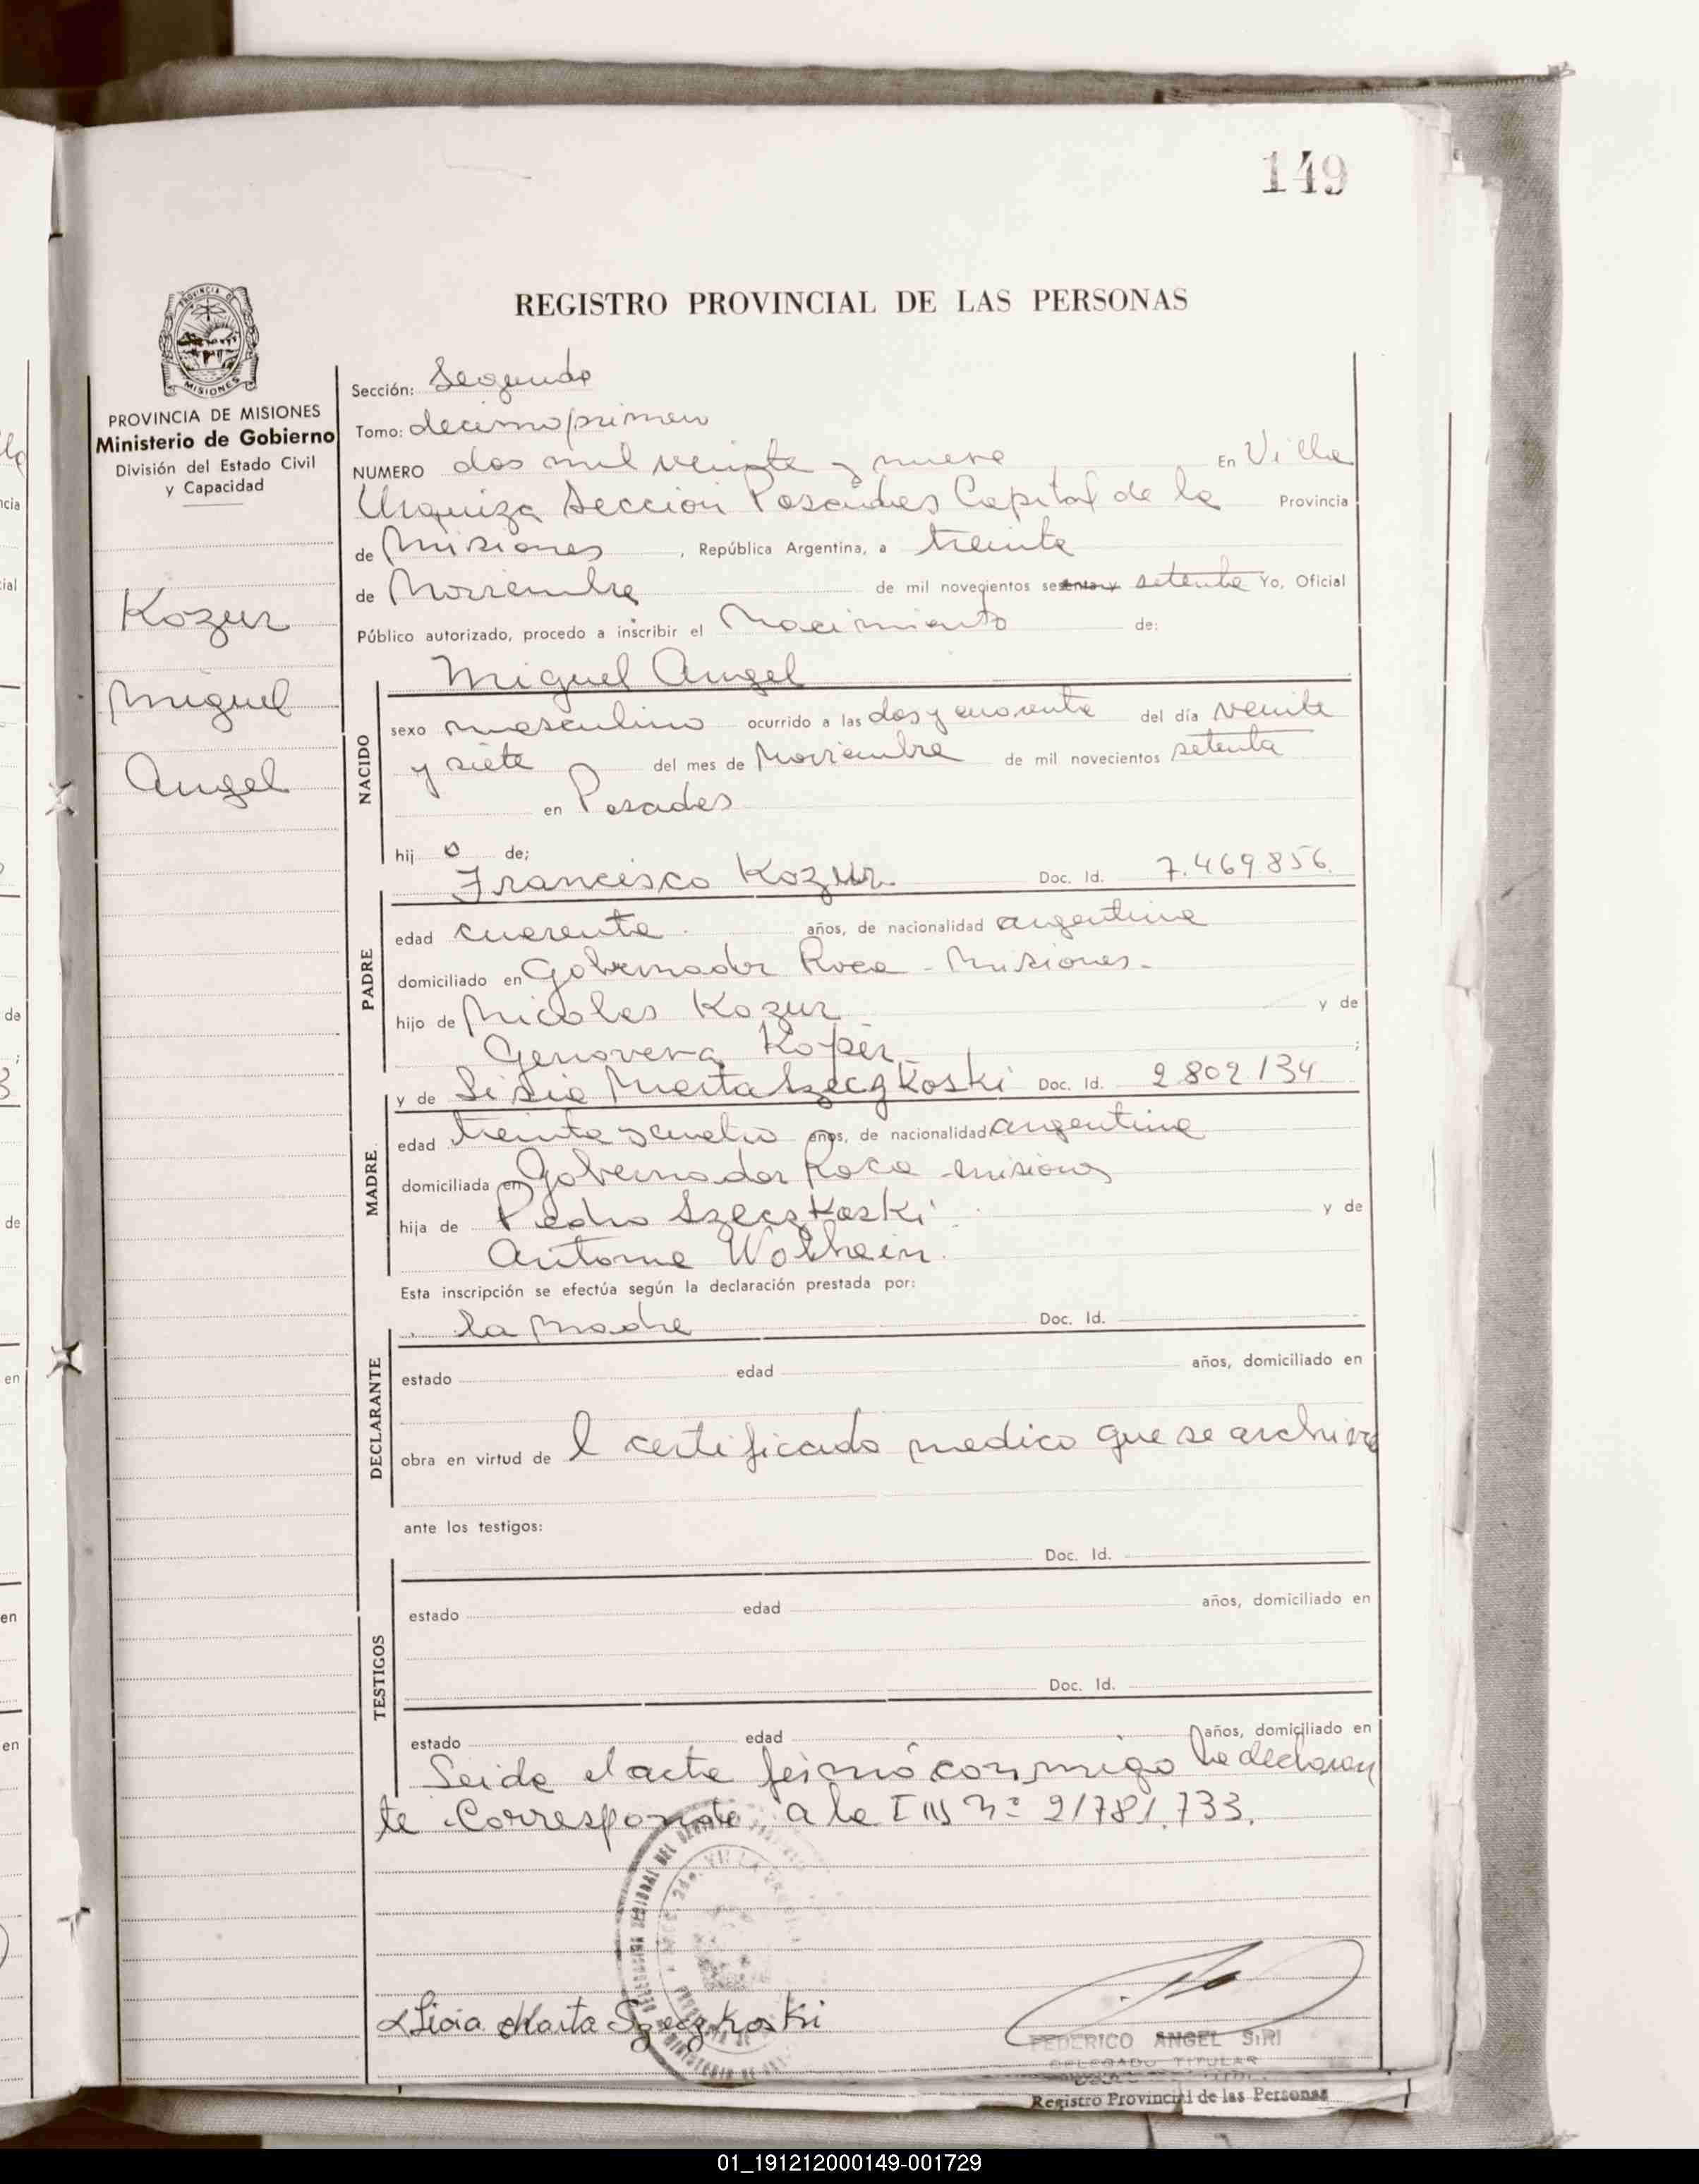 149
REGISTRO PROVINCIAL DE LAS PERSONAS
PROVINCIA DE MISIONES
Ministerio de Gobierno
División del Estado Civil
y Capacidad
Kozur
Miguel
Angel
Sección: Segunda
Tomo: decimo primero
NUMERO dos mil veinte y nueve En Villa
Urquiza Sección Posadas Capital de la Provincia
de Misiones, República Argentina, a treinta
de Noviembre de mil novecientos sesenta y setenta Yo, Oficial
Público autorizado, procedo a inscribir el Nacimiento de:
Miguel Angel
NACIDO
sexo masculino ocurrido a las dos y cuarenta del día veinte
y siete del mes de Noviembre de mil novecientos setenta
en Posadas
hij o de;
Francisco Kozur Doc. Id. 7.469.856.
PADRE
edad cuarenta años, de nacionalidad argentina
domiciliado en Gobernador Roca - Misiones -
hijo de Nicolas Kozur y de
Genoveva Koper ;
y de Marta Szeczkoski Doc. Id. 2.802.134
MADRE
edad treinta y cuatro años, de nacionalidad argentina
domiciliada en Gobernador Roca Misiones
hija de Pedro Szeczkoski y de
Antonia Wolhein.
Esta inscripción se efectúa según la declaración prestada por:
la madre Doc. Id.
DECLARANTE
estado edad años, domiciliado en
obra en virtud de l certificado medico que se archiva
ante los testigos:
Doc. Id.
TESTIGOS
estado edad años, domiciliado en
Doc. Id.
estado edad años, domiciliado en
Leida el acta firmó conmigo la declaran
te Corresponde a la nº 21781.733.
Marta Szeczkoski
FEDERICO ANGEL SIRI
DELEGADO TITULAR
Registro Provincial de las Personas
01_191212000149-001729